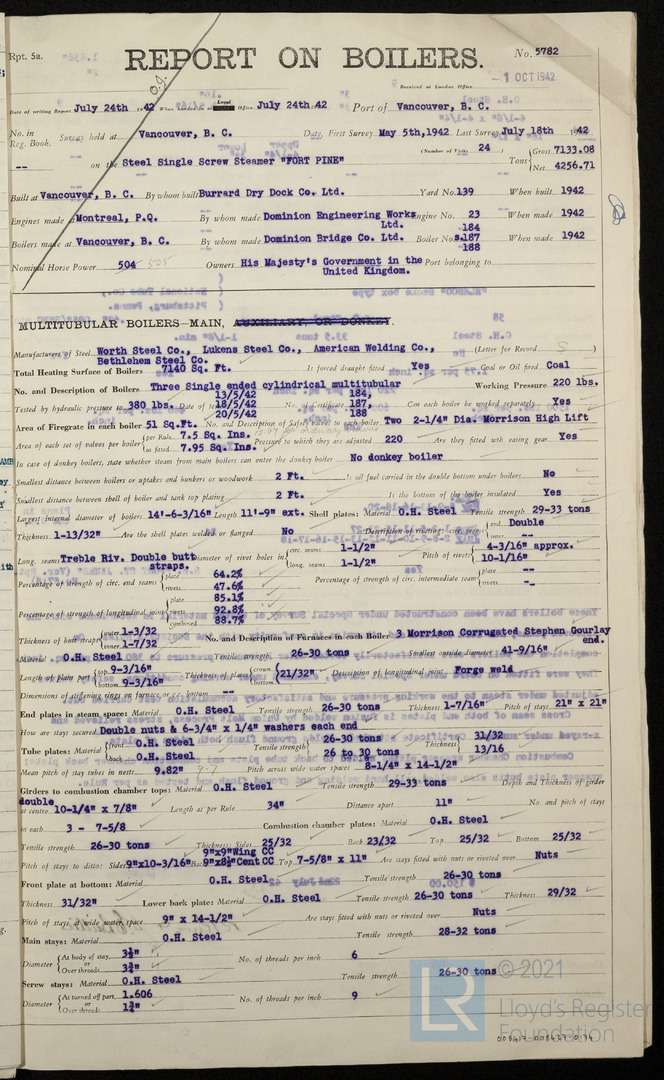 Rpt. 5a.
REPORT ON BOILERS.
No. 5782
Received at London Office
- 1 OCT 1942
Date of writing Report July 24th 1942 When handed in at Local Office July 24th 42 Port of Vancouver, B. C.
No. in Reg. Book. Survey held at Vancouver, B. C. Date, First Survey May 5th, 1942 Last Survey July 18th 1942
(Number of Visits 24
-- on the Steel Single Screw Steamer "FORT PINE" Tons { Gross 7133.08 Net 4256.71
Built at Vancouver, B. C. By whom built Burrard Dry Dock Co. Ltd. Yard No. 139 When built 1942
Engines made at Montreal, P.Q. By whom made Dominion Engineering Works Ltd. Engine No. 23 When made 1942
Boilers made at Vancouver, B. C. By whom made Dominion Bridge Co. Ltd. Boiler Nos. 184 187 188 When made 1942
Nominal Horse Power 504 505 Owners His Majesty's Government in the United Kingdom. Port belonging to
MULTITUBULAR BOILERS—MAIN, AUXILIARY, OR DONKEY.
Manufacturers of Steel Worth Steel Co., Lukens Steel Co., American Welding Co., Bethlehem Steel Co. (Letter for Record S )
Total Heating Surface of Boilers 7140 Sq. Ft. Is forced draught fitted Yes Coal or Oil fired Coal
No. and Description of Boilers Three Single ended cylindrical multitubular Working Pressure 220 lbs.
Tested by hydraulic pressure to 380 lbs. Date of test 13/5/42 18/5/42 20/5/42 No. of Certificate 184, 187, 188 Can each boiler be worked separately Yes
Area of Firegrate in each boiler 51 Sq.Ft. No. and Description of Safety valves to each boiler Two 2-1/4" Dia. Morrison High Lift
Area of each set of valves per boiler { per Rule 7.5 Sq. Ins. as fitted 7.95 Sq. Ins. Pressure to which they are adjusted 220 Are they fitted with easing gear Yes
In case of donkey boilers, state whether steam from main boilers can enter the donkey boiler No donkey boiler
Smallest distance between boilers or uptakes and bunkers or woodwork 2 Ft. Is oil fuel carried in the double bottom under boilers No
Smallest distance between shell of boiler and tank top plating 2 Ft. Is the bottom of the boiler insulated Yes
Largest internal diameter of boilers 14'-6-3/16" Length 11'-9" ext. Shell plates: Material O.H. Steel Tensile strength 29-33 tons
Thickness 1-13/32" Are the shell plates welded or flanged No Description of riveting: circ. seams { end Double inter. --
Long. seams Treble Riv. Double butt straps. Diameter of rivet holes in { circ. seams 1-1/2" long. seams 1-1/2" Pitch of rivets { 4-3/16" approx. 10-1/16"
Percentage of strength of circ. end seams { plate 64.2% rivets 47.6% Percentage of strength of circ. intermediate seam { plate -- rivets --
Percentage of strength of longitudinal joint { plate 85.1% rivets 92.8% combined 88.7%
Thickness of butt straps { outer 1-3/32 inner 1-7/32 No. and Description of Furnaces in each Boiler 3 Morrison Corrugated Stephen Gourlay end.
Material O.H. Steel Tensile strength 26-30 tons Smallest outside diameter 41-9/16"
Length of plain part { top 9-3/16" bottom 9-3/16" Thickness of plates { crown bottom 21/32" Description of longitudinal joint Forge weld
Dimensions of stiffening rings on furnace or c.c. bottom --
End plates in steam space: Material O.H. Steel Tensile strength 26-30 tons Thickness 1-7/16" Pitch of stays 21" x 21"
How are stays secured Double nuts & 6-3/4" x 1/4" washers each end
Tube plates: Material { front O.H. Steel back O.H. Steel Tensile strength { 26-30 tons 26 to 30 tons Thickness { 31/32 13/16
Mean pitch of stay tubes in nests 9.82" Pitch across wide water spaces 8-1/4" x 14-1/2"
Girders to combustion chamber tops: Material O.H. Steel Tensile strength 29-33 tons Depth and Thickness of girder
double at centre 10-1/4" x 7/8" Length as per Rule 34" Distance apart 11" No. and pitch of stays
in each 3 - 7-5/8 Combustion chamber plates: Material O.H. Steel
Tensile strength 26-30 tons Thickness: Sides 25/32 Back 23/32 Top 25/32 Bottom 25/32
Pitch of stays to ditto: Sides 9"x10-3/16" Back 9"x9"Wing CC 9"x8½"Cent CC Top 7-5/8" x 11" Are stays fitted with nuts or riveted over Nuts
Front plate at bottom: Material O.H. Steel Tensile strength 26-30 tons
Thickness 31/32" Lower back plate: Material O.H. Steel Tensile strength 26-30 tons Thickness 29/32
Pitch of stays at wide water space 9" x 14-1/2" Are stays fitted with nuts or riveted over Nuts
Main stays: Material O.H. Steel Tensile strength 28-32 tons
Diameter { At body of stay, or Over threads 3½" 3¾" No. of threads per inch 6
Screw stays: Material O.H. Steel Tensile strength 26-30 tons
Diameter { At turned off part, or Over threads 1.606 1¾" No. of threads per inch 9
LR
© 2021
Lloyd's Register
Foundation
008417-008427-0174